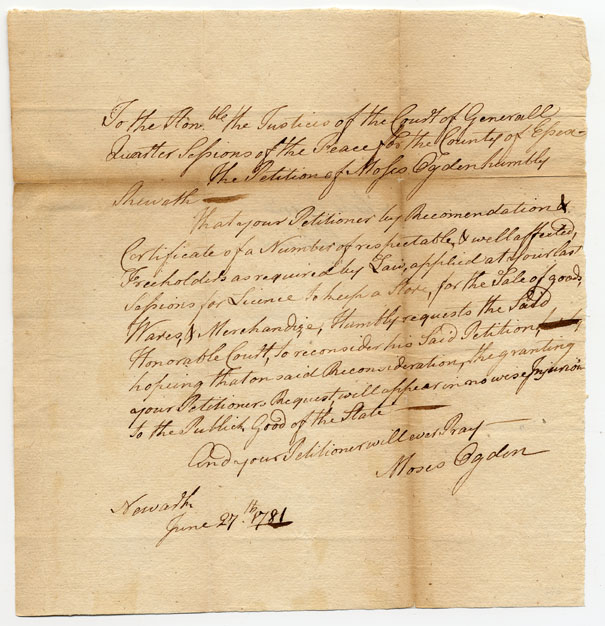 To the Hon.ble the Justices of the Court of Generall
Quarter Sessions of the Peace for the County of Essex
The Petition of Moses Ogden humbly
Sheweth
That your Petitioner by Recomendation &
Certificate of a Number of respectable, & well affected,
Freeholders as required by Law, applied at your last
Sessions for Licence to keep a Store, for the Sale of goods
Wares, & Merchandize, Humbly requests the Said
Honorable Court, to reconsider his Said Petition,
hopeing that on said Reconsideration, the granting
your Petitioners Request, will appear in no wise Injurious
to the Publick Good of the State
And your Petitioner will ever Pray
Moses Ogden
Newark
June 27.th 1781